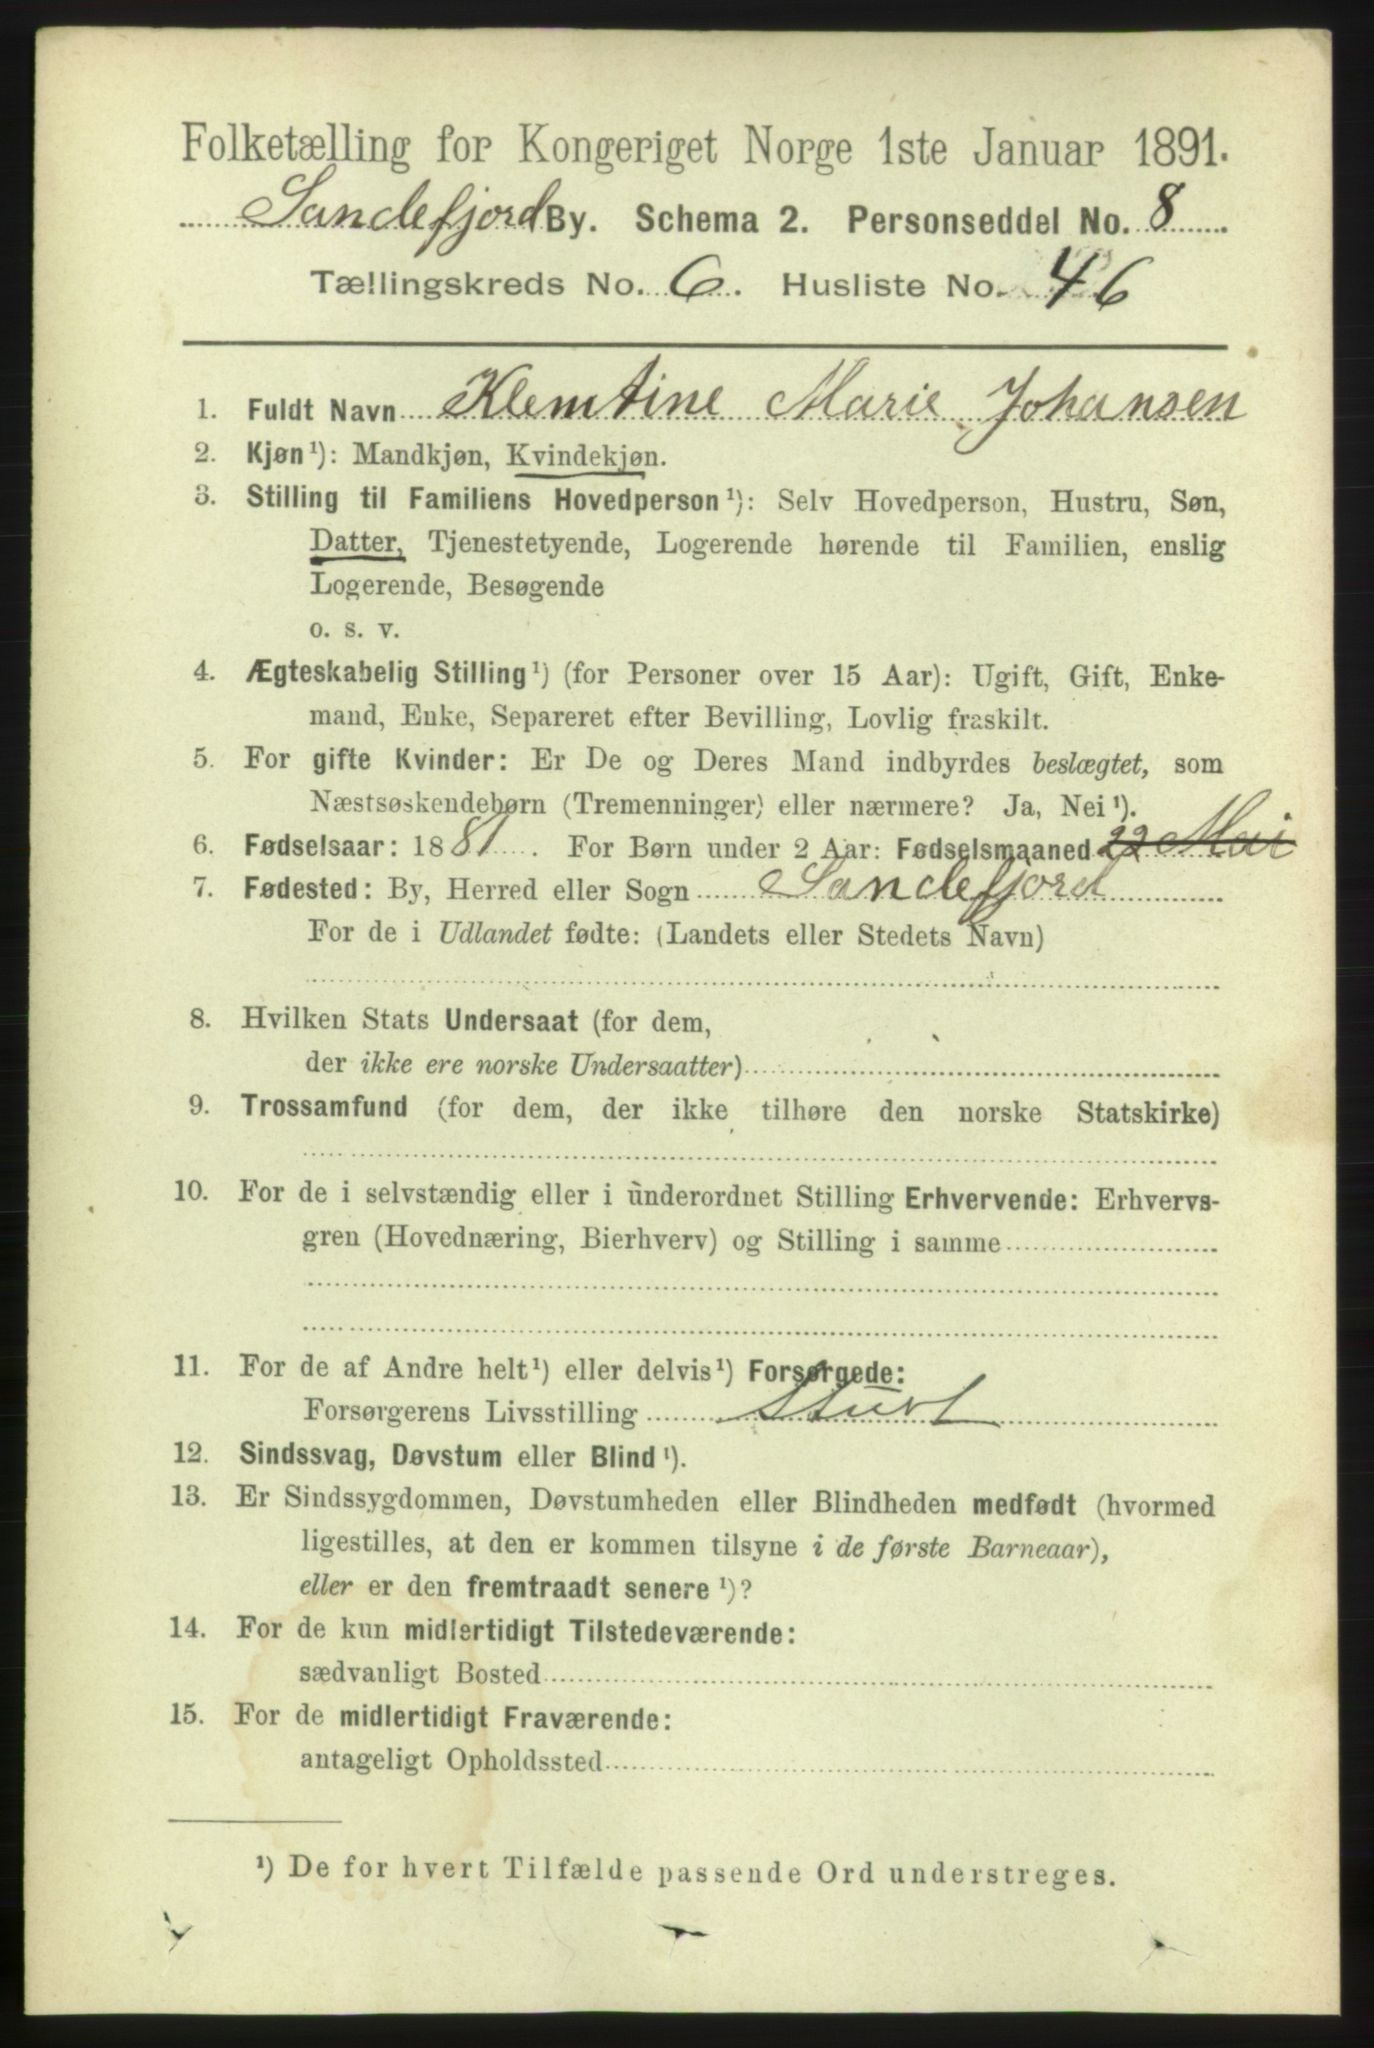 Folketælling for Kongeriget Norge 1ste Januar 1891.
Sandefjord By. Schema 2. Personseddel No. 8
Tællingskreds No. 6. Husliste No. 46
1. Fuldt Navn Klemtine Marie Johansen
2. Kjøn¹): Mandkjøn, Kvindekjøn.
3. Stilling til Familiens Hovedperson¹): Selv Hovedperson, Hustru, Søn,
Datter, Tjenestetyende, Logerende hørende til Familien, enslig
Logerende, Besøgende
o. s. v.
4. Ægteskabelig Stilling¹) (for Personer over 15 Aar): Ugift, Gift, Enke-
mand, Enke, Separeret efter Bevilling, Lovlig fraskilt.
5. For gifte Kvinder: Er De og Deres Mand indbyrdes beslægtet, som
Næstsøskendebørn (Tremenninger) eller nærmere? Ja, Nei¹).
6. Fødselsaar: 1881. For Børn under 2 Aar: Fødselsmaaned 22 Mai
7. Fødested: By, Herred eller Sogn Sandefjord
For de i Udlandet fødte: (Landets eller Stedets Navn)
8. Hvilken Stats Undersaat (for dem,
der ikke ere norske Undersaatter)
9. Trossamfund (for dem, der ikke tilhøre den norske Statskirke)
10. For de i selvstændig eller i underordnet Stilling Erhvervende: Erhvervs-
gren (Hovednæring, Bierhverv) og Stilling i samme
11. For de af Andre helt¹) eller delvis¹) Forsørgede:
Forsørgerens Livsstilling
12. Sindssvag, Døvstum eller Blind¹).
13. Er Sindssygdommen, Døvstumheden eller Blindheden medfødt (hvormed
ligestilles, at den er kommen tilsyne i de første Barneaar),
eller er den fremtraadt senere¹)?
14. For de kun midlertidigt Tilstedeværende:
sædvanligt Bosted
15. For de midlertidigt Fraværende:
antageligt Opholdssted
¹) De for hvert Tilfælde passende Ord understreges.